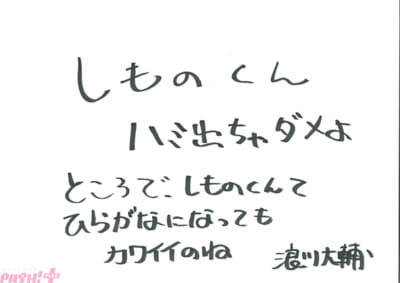 しものくん
ハミ出ちゃダメよ
ところで、しものくんて
ひらがなになっても
カワイイのね
浪川大輔
PASH!+